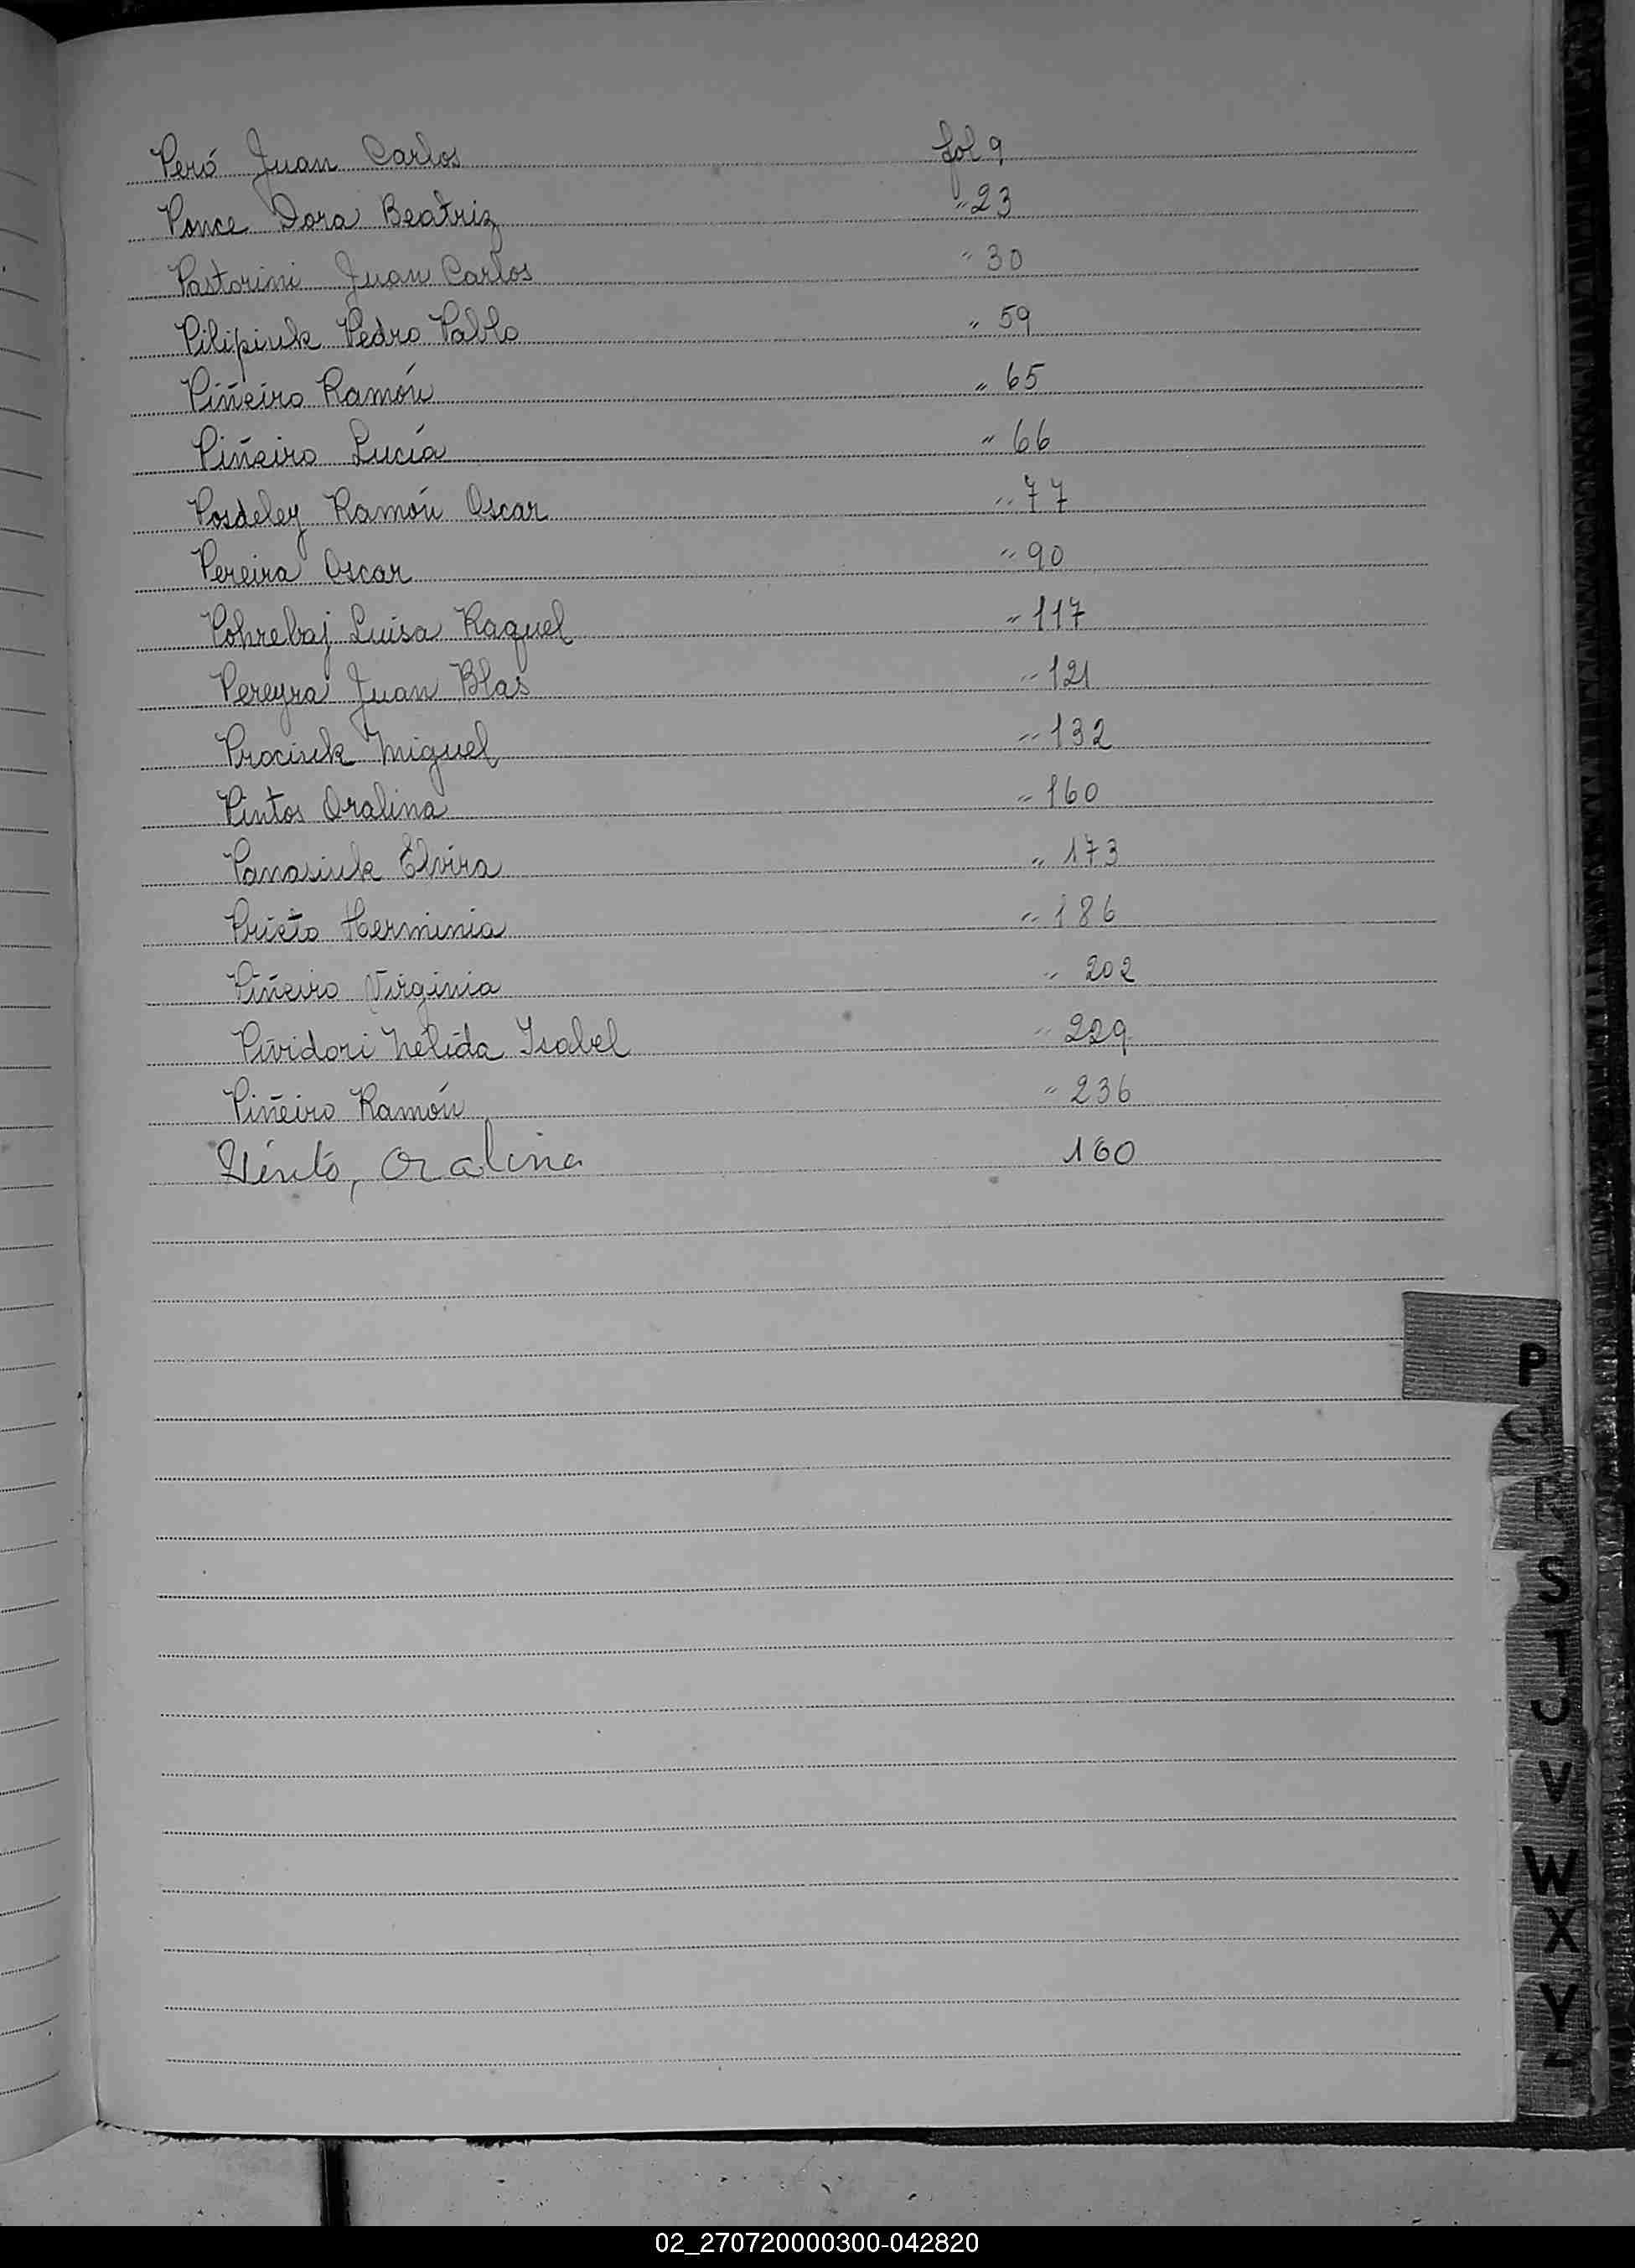 Peró Juan Carlos fol 9
Ponce Dora Beatriz " 23
Pastorini Juan Carlos " 30
Pilipiuk Pedro Pablo " 59
Piñeiro Ramón " 65
Piñeiro Lucía " 66
Posdeley Ramón Oscar " 77
Pereira Oscar " 90
Pohrebaj Luisa Raquel " 117
Pereyra Juan Blas " 121
Prociuk Miguel " 132
Pintos Oralina " 160
Panasiuk Elvira " 173
Prieto Herminia " 186
Piñeiro Virginia " 202
Pividori Nélida Isabel " 229
Piñeiro Ramón " 236
Oralina 160
P
Q
R
S
T
U
V
W
X
Y
02_270720000300-042820